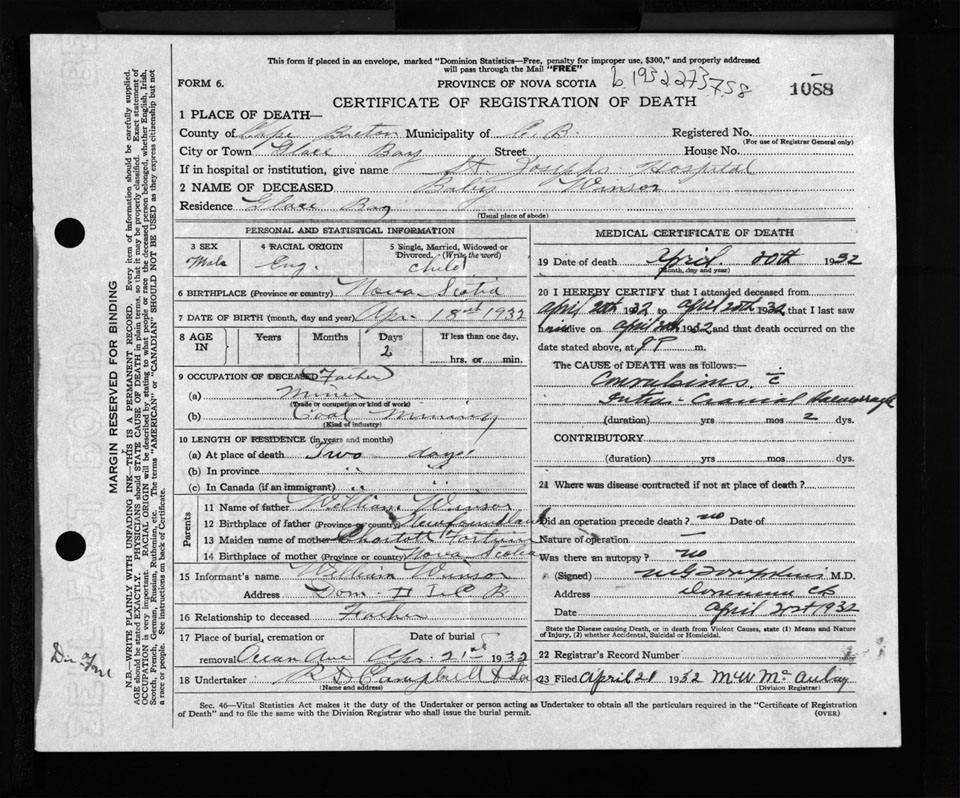 This form if placed in an envelope, marked "Dominion Statistics—Free, penalty for improper use, $300," and properly addressed
will pass through the Mail "FREE"
FORM 6.
PROVINCE OF NOVA SCOTIA
b 1932 273758
1088
CERTIFICATE OF REGISTRATION OF DEATH
1 PLACE OF DEATH—
County of Cape Breton Municipality of C. B. Registered No.
(For use of Registrar General only)
City or Town Glace Bay Street House No.
If in hospital or institution, give name St. Josephs Hospital
2 NAME OF DECEASED Baby Winsor
Residence Glace Bay
(Usual place of abode)
PERSONAL AND STATISTICAL INFORMATION
3 SEX 4 RACIAL ORIGIN 5 Single, Married, Widowed or Divorced. (Write the word)
Male Eng. child
6 BIRTHPLACE (Province or country) Nova Scotia
7 DATE OF BIRTH (month, day and year) Apr. 18 1932
8 AGE IN Years Months Days If less than one day,
2 hrs. or min.
9 OCCUPATION OF DECEASED Father
(a) Miner
(Trade or occupation or kind of work)
(b) Coal Mining
(Kind of industry)
10 LENGTH OF RESIDENCE (in years and months)
(a) At place of death Two days
(b) In province " "
(c) In Canada (if an immigrant) " "
Parents
11 Name of father William Winsor
12 Birthplace of father (Province or country) Newfoundland
13 Maiden name of mother
14 Birthplace of mother (Province or country) Nova Scotia
15 Informant's name William Winsor
Address Dom. C B
16 Relationship to deceased Father
17 Place of burial, cremation or Date of burial
removal Ocean Ave Apr. 21st 1932
18 Undertaker R D Campbell & Son
(Name and address)
MEDICAL CERTIFICATE OF DEATH
19 Date of death April 20th 1932
(Month, day and year)
20 I HEREBY CERTIFY that I attended deceased from
April 20th 1932 to April 20th 1932 that I last saw
h alive on April 20th 1932 and that death occurred on the
date stated above, at 9 P m.
The CAUSE of DEATH was as follows:—
Convulsions c̄
Intra-Cranial Hemorrhage
(duration) yrs mos 2 dys.
CONTRIBUTORY
(duration) yrs. mos dys.
21 Where was disease contracted if not at place of death?
Did an operation precede death? no Date of
Nature of operation —
Was there an autopsy? no
(Signed) M.D.
Address Dominion CB
Date April 21st 1932
State the Disease causing Death, or in death from Violent Causes, state (1) Means and Nature
of Injury, (2) whether Accidental, Suicidal or Homicidal.
22 Registrar's Record Number
23 Filed April 21 1932 M W McAulay
(Division Registrar)
Sec. 46—Vital Statistics Act makes it the duty of the Undertaker or person acting as Undertaker to obtain all the particulars required in the "Certificate of Registration
of Death" and to file the same with the Division Registrar who shall issue the burial permit.
(OVER)
MARGIN RESERVED FOR BINDING
N.B.—WRITE PLAINLY WITH UNFADING INK—THIS IS A PERMANENT RECORD. Every item of information should be carefully supplied.
AGE should be stated EXACTLY. PHYSICIANS should STATE CAUSE OF DEATH in plain terms, so that it may be properly classified. Exact statement of
OCCUPATION is very important. RACIAL ORIGIN will be described by stating to what people or race the deceased person belonged, whether English, Irish,
Scotch, French, German, Russian, Ruthenian, etc. The terms "AMERICAN" or "CANADIAN" SHOULD NOT BE USED as they express citizenship but not
a race or people. See instructions on back of Certificate.